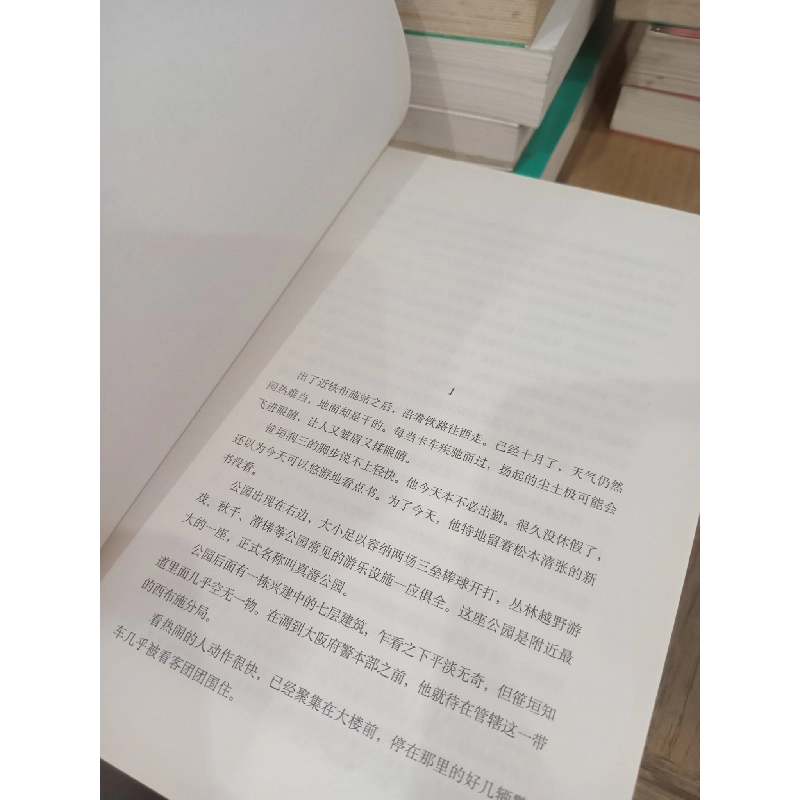 1
出了近铁布施站之后，沿着铁路往西走。已经十月了，天气仍然
闷热难当，地面却是干的。每当卡车疾驰而过，扬起的尘土极可能会
飞进眼睛，让人又皱眉又揉眼睛。
笹垣润三的脚步说不上轻快。他今天本不必出勤。很久没休假了，
还以为今天可以悠游地看点书。为了今天，他特地留着松本清张的新
书没看。
公园出现在右边，大小足以容纳两场三垒棒球开打，丛林越野游
戏、秋千、滑梯等公园常见的游乐设施一应俱全。这座公园是附近最
大的一座，正式名称叫真澄公园。
公园后面有一栋兴建中的七层建筑，乍看之下平淡无奇，但笹垣知
道里面几乎空无一物。在调到大阪府警本部之前，他就待在管辖这一带
的西布施分局。
看热闹的人动作很快，已经聚集在大楼前，停在那里的好几辆警
车几乎被看客团团围住。